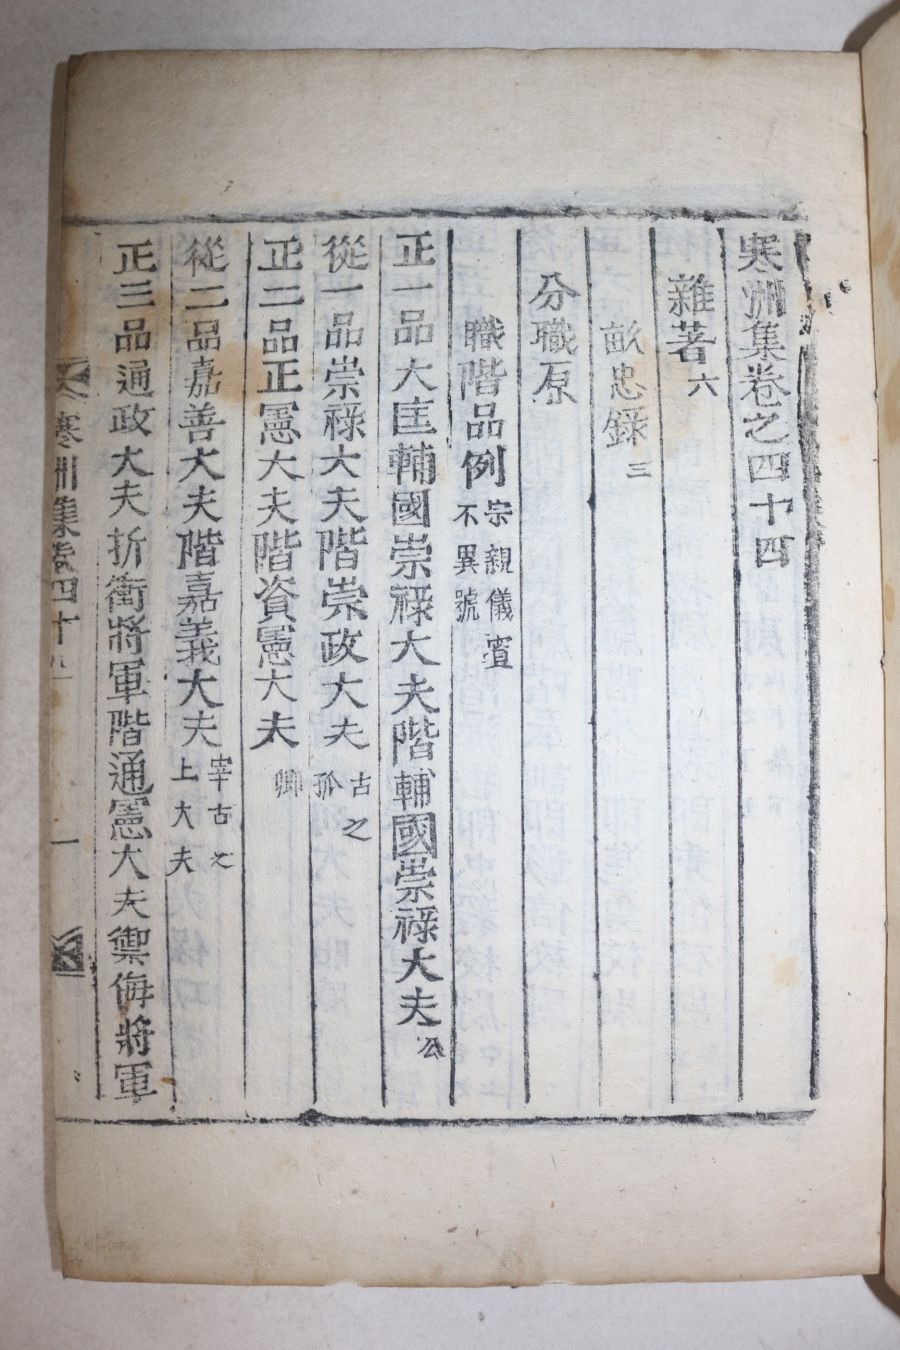 寒洲集卷之四十四
雜著六
畝忠錄三
分職原
職階品例宗親儀賓不異號
正一品大匡輔國崇祿大夫階輔國崇祿大夫公
從一品崇祿大夫階崇政大夫古之孤
正二品正憲大夫階資憲大夫卿
從二品嘉善大夫階嘉義大夫古之宰上大夫
正三品通政大夫折衝將軍階通憲大夫禦侮將軍
寒洲集卷四十
一